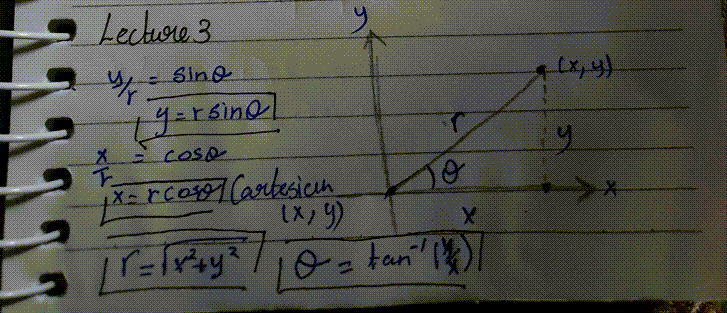 Lecture 3
y/r = sinθ
y = r sinθ
x/r = cosθ
x = r cosθ Cartesian
(x, y)
r = √x²+y²
θ = tan⁻¹(y/x)
y
(x, y)
r
y
θ
x
x